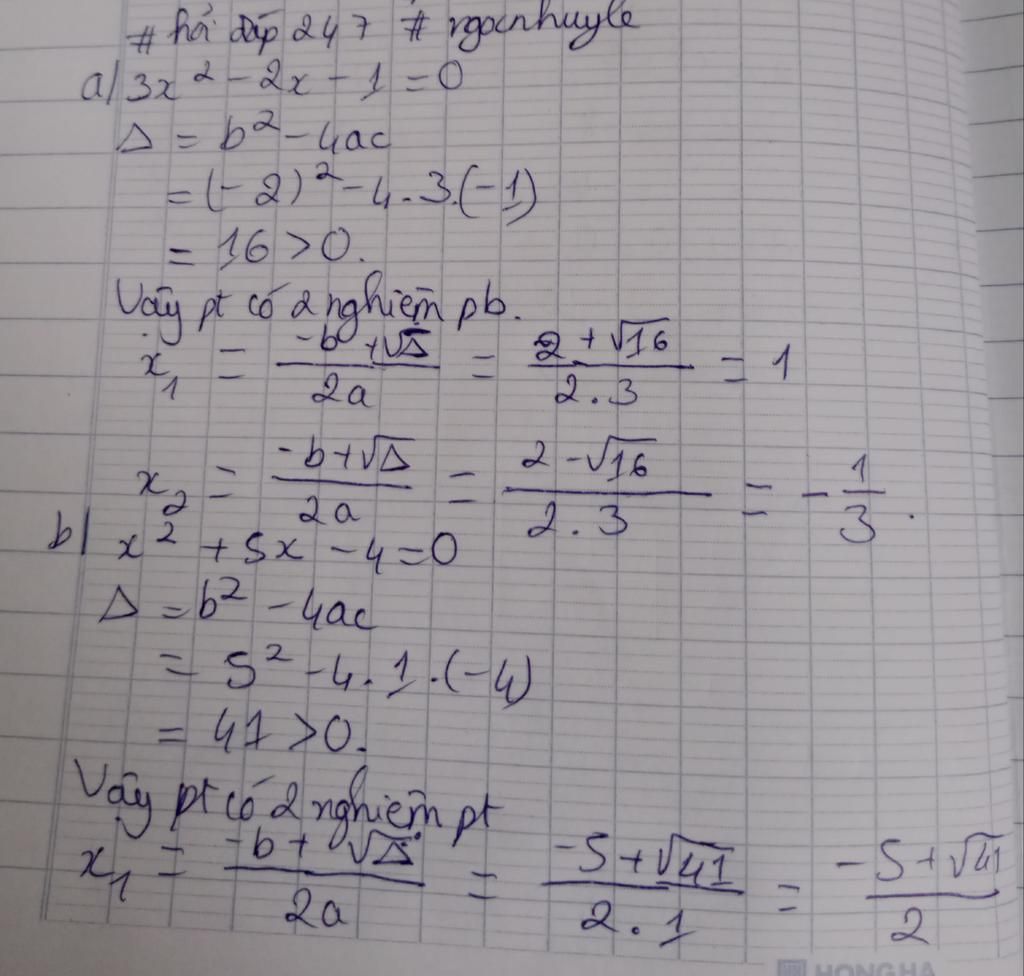 # hỏi đáp 247 # ngocnhuyle
a/ 3x² - 2x - 1 = 0
Δ = b² - 4ac
= (-2)² - 4.3.(-1)
= 16 > 0.
Vậy pt có 2 nghiệm pb.
x₁ = (-b + √Δ)/2a = (2 + √16)/2.3 = 1
x₂ = (-b + √Δ)/2a = (2 - √16)/2.3 = -1/3.
b/ x² + 5x - 4 = 0
Δ = b² - 4ac
= 5² - 4.1.(-4)
= 41 > 0.
Vậy pt có 2 nghiệm pt
x₁ = (-b + √Δ)/2a = (-5 + √41)/2.1 = (-5 + √41)/2
HONG HA